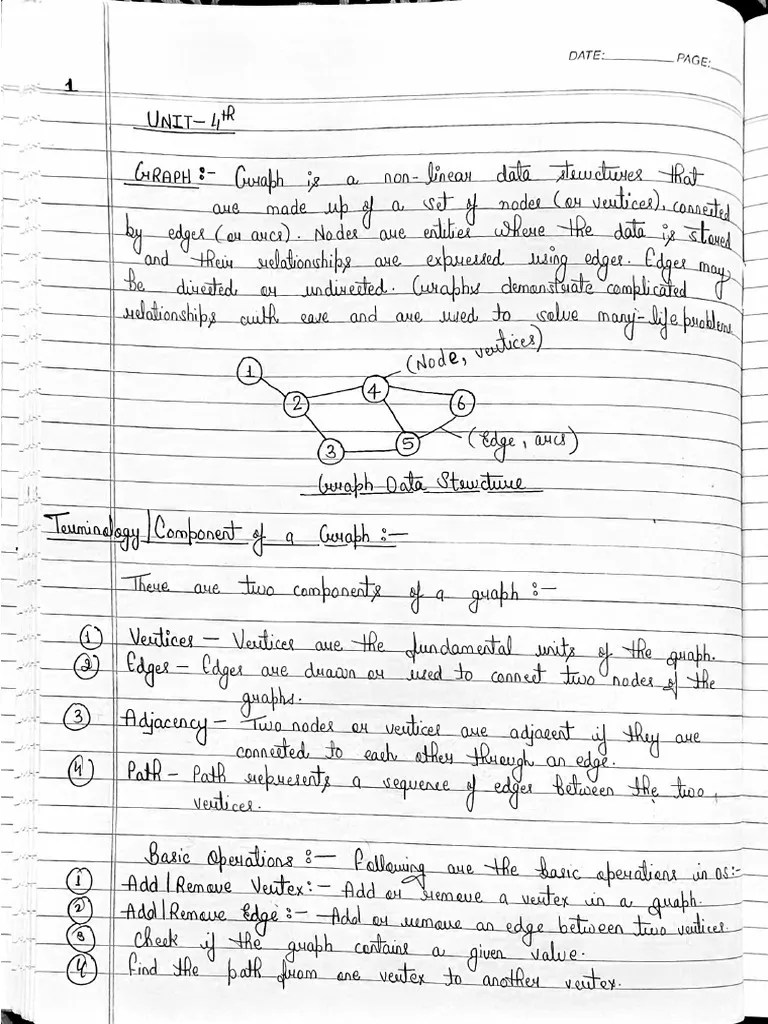 DATE:________ PAGE:____
1
UNIT-4th
GRAPH :- Graph is a non-linear data structures that
are made up of a set of nodes (or vertices), connected
by edges (or arcs). Nodes are entities where the data is stored
and their relationships are expressed using edges. Edges may
be directed or undirected. Graphs demonstrate complicated
relationships with ease and are used to solve many-life problems
1
2
3
4
5
6
(Node, vertices)
(Edge, arcs)
Graph Data Structure
Terminology | Component of a Graph :-
There are two components of a graph :-
1 Vertices - Vertices are the fundamental units of the graph.
2 Edges - Edges are drawn or used to connect two nodes of the
graphs.
3 Adjacency - Two nodes or vertices are adjacent if they are
connected to each other through an edge.
4 Path - Path represents a sequence of edges between the two
vertices.
Basic Operations :- Following are the basic operations in as:-
1 Add | Remove Vertex :- Add or remove a vertex in a graph.
2 Add | Remove Edge :- Add or remove an edge between two vertices.
3 Check if the graph contains a given value.
4 Find the path from one vertex to another vertex.